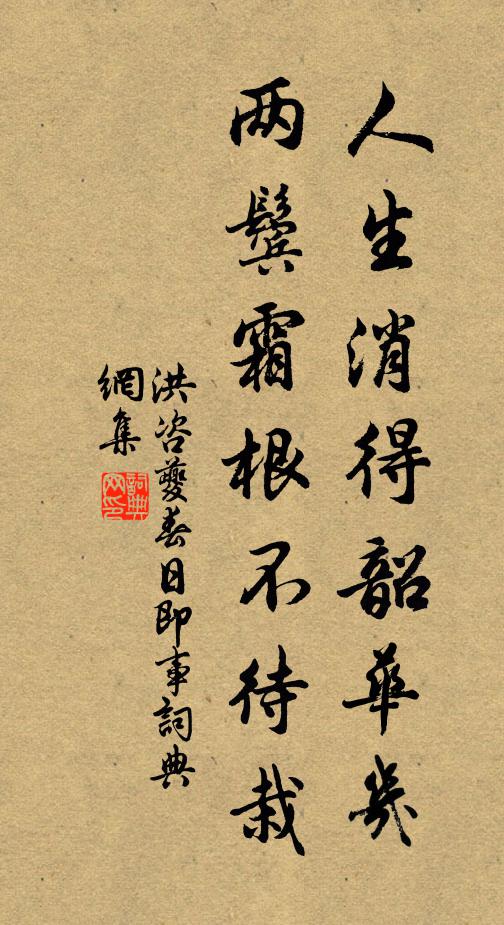 人生消得韶華幾
两鬓霜根不待栽
洪咨夔春日即事詞典
網集
詞典
网印